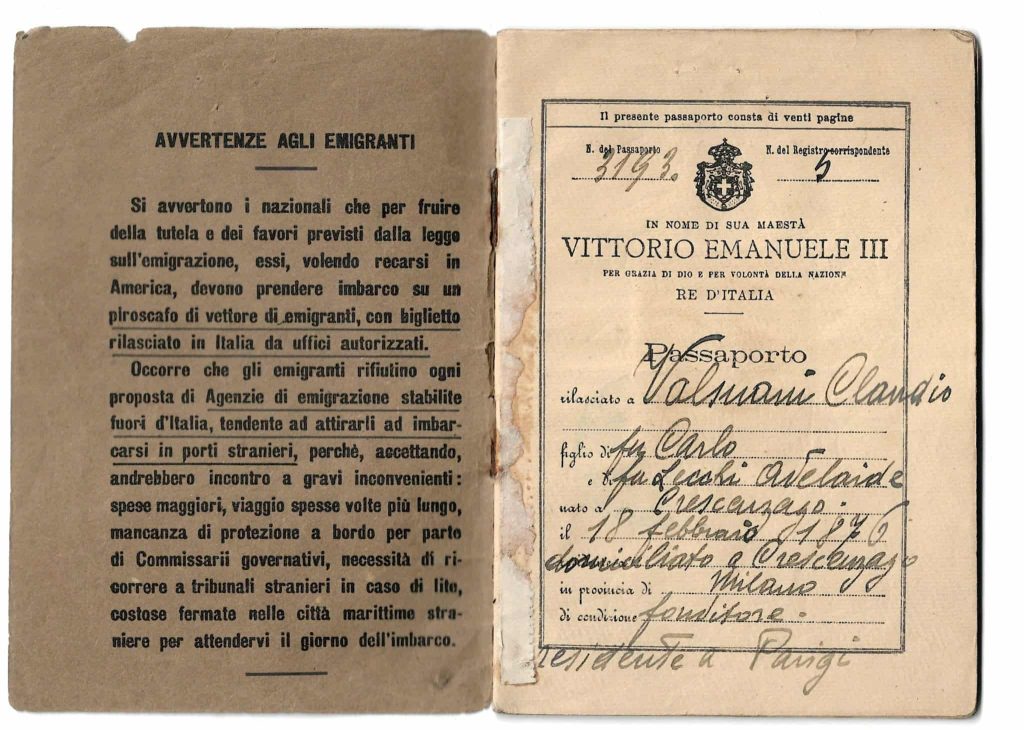 AVVERTENZE AGLI EMIGRANTI
Si avvertono i nazionali che per fruire
della tutela e dei favori previsti dalla legge
sull'emigrazione, essi, volendo recarsi in
America, devono prendere imbarco su un
piroscafo di vettore di emigranti, con biglietto
rilasciato in Italia da uffici autorizzati.
Occorre che gli emigranti rifiutino ogni
proposta di Agenzie di emigrazione stabilite
fuori d'Italia, tendente ad attirarli ad imbar-
carsi in porti stranieri, perchè, accettando,
andrebbero incontro a gravi inconvenienti:
spese maggiori, viaggio spesse volte più lungo,
mancanza di protezione a bordo per parte
di Commissarii governativi, necessità di ri-
correre a tribunali stranieri in caso di lite,
costose fermate nelle città marittime stra-
niere per attendervi il giorno dell'imbarco.
Il presente passaporto consta di venti pagine
N. del Passaporto N. del Registro corrispondente
3193. 5
IN NOME DI SUA MAESTÀ
VITTORIO EMANUELE III
PER GRAZIA DI DIO E PER VOLONTÀ DELLA NAZIONE
RE D'ITALIA
Passaporto
rilasciato a Claudio
figlio di fu Carlo
e di fu Adelaide
nato a Crescenzago
il 18 febbraio 1876
domiciliato a Crescenzago
in provincia di Milano
di condizione fonditore
residente a Parigi